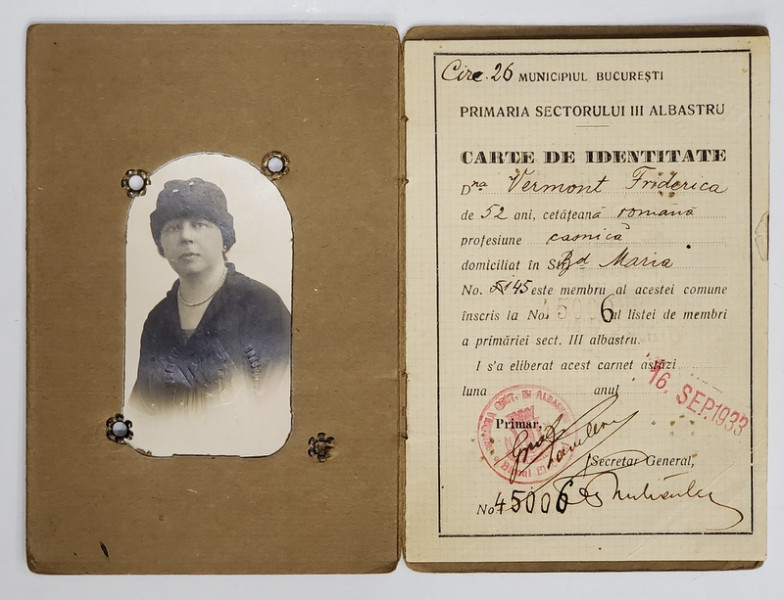 Circ. 26 MUNICIPIUL BUCUREȘTI
PRIMARIA SECTORULUI III ALBASTRU
CARTE DE IDENTITATE
Dna Vermont Friderica
de 52 ani, cetățeană romană
profesiune casnică
domiciliat în Str. Bd Maria
No. 145 este membru al acestei comune
înscris la No. 45006 al listei de membri
a primăriei sect. III albastru.
I s'a eliberat acest carnet astăzi
luna anul
16. SEP. 1933
Primar,
Secretar General,
No 45006